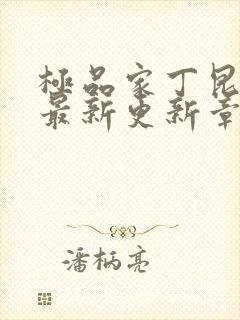 極品家丁昆
最新更新章
潘柄亮